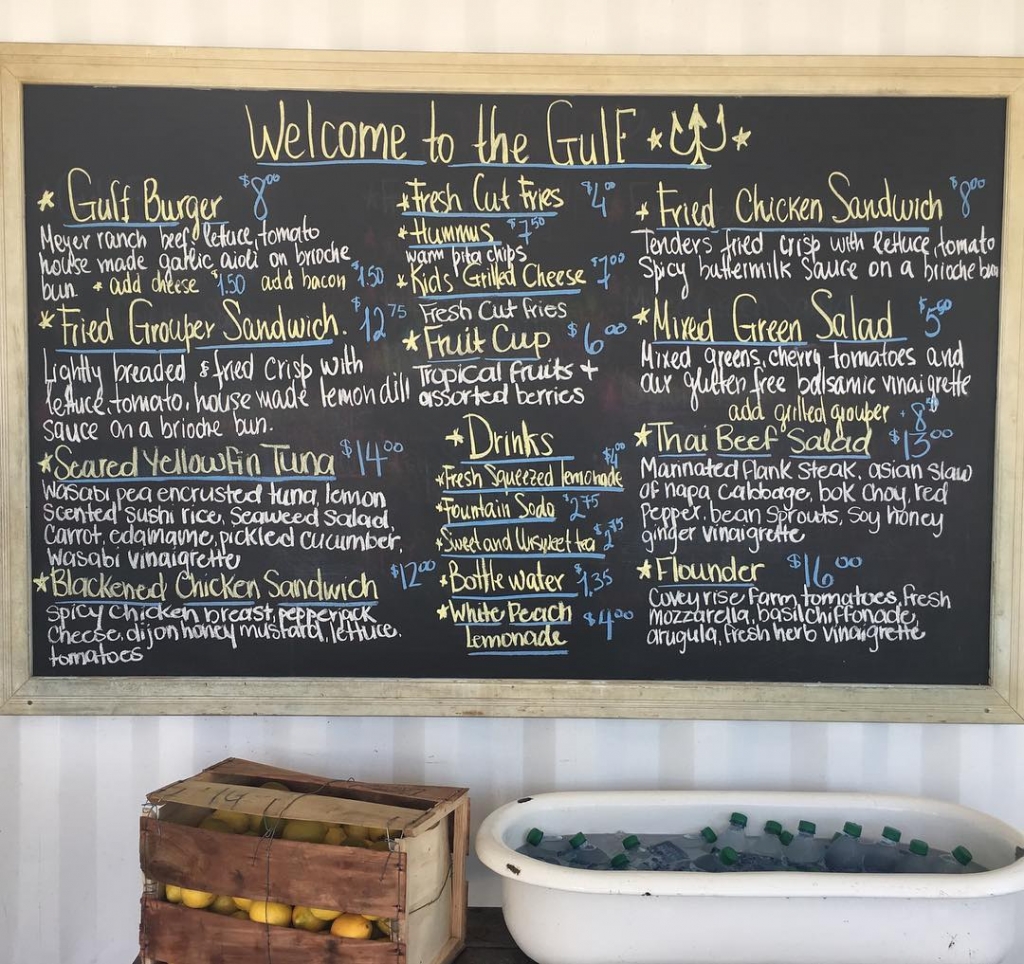 Welcome to the Gulf
Gulf Burger $8.00
Meyer ranch beef, lettuce, tomato
house made garlic aioli on brioche
bun. + add cheese $1.50 add bacon $1.50
Fried Grouper Sandwich. $12.75
Lightly breaded & fried crisp with
lettuce, tomato, house made lemon dill
sauce on a brioche bun.
Seared Yellowfin Tuna $14.00
Wasabi pea encrusted tuna, lemon
scented sushi rice, seaweed salad,
carrot, edamame, pickled cucumber,
wasabi vinaigrette
Blackened Chicken Sandwich $12.00
spicy chicken breast, pepperjack
cheese, dijon honey mustard, lettuce,
tomatoes
Fresh Cut Fries $4.00
Hummus $7.50
warm pita chips
Kids Grilled Cheese $7.00
Fresh cut fries
Fruit Cup $6.00
Tropical fruits +
assorted berries
Drinks
Fresh Squeezed lemonade $4.00
Fountain Soda $2.75
Sweet and Unsweet tea $2.75
Bottle water $1.35
White Peach $4.00
Lemonade
Fried Chicken Sandwich $8.00
Tenders fried crisp with lettuce, tomato
spicy buttermilk sauce on a brioche bun
Mixed Green Salad $5.50
Mixed greens, cherry tomatoes and
our gluten free balsamic vinaigrette
add grilled grouper + 8
Thai Beef Salad $13.00
Marinated flank steak, asian slaw
of napa cabbage, bok choy, red
pepper, bean sprouts, soy honey
ginger vinaigrette
Flounder $16.00
Covey rise Farm tomatoes, fresh
mozzarella, basil chiffonade,
arugula, fresh herb vinaigrette